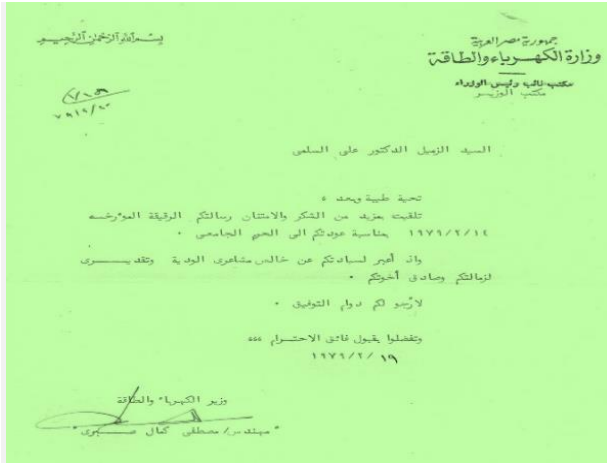 بسم الله الرحمن الرحيم
جمهورية مصر العربية
وزارة الكهرباء والطاقة
مكتب نائب رئيس الوزراء
مكتب الوزير
السيد الزميل الدكتور على السلمى
تحية طيبة وبعد ،
تلقيت بمزيد من الشكر والامتنان رسالتكم الرقيقة المؤرخــه
١٩٧٩/٢/١٤ بمناسبة عودتكم الى الحرم الجامعى .
واذ أعبر لسيادتكم عن خالص مشاعرى الودية وتقديــــرى
لزمالتكم وصادق أخوتكم .
لأرجو لكم دوام التوفيق .
وتفضلوا بقبول فائق الاحتــرام ،،،
١٩٧٩/٢/١٩
وزير الكهرباء والطاقة
" مهندس/ مصطفى كمال صبــرى "